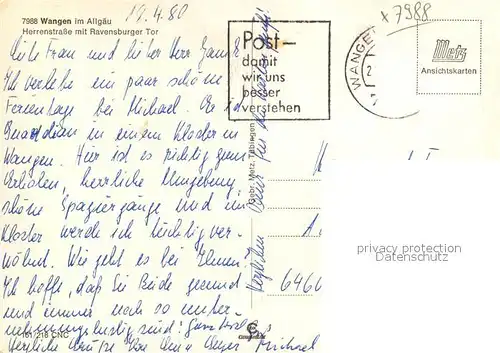 7988 Wangen im Allgäu
Herrenstraße mit Ravensburger Tor
19.4.80
x 7988
Post-
damit
wir uns
besser
verstehen
WANGE
Metz
Ansichtskarten
Liebe Frau und lieber Herr
Ich verlebe ein paar schöne
Ferientage bei Michael. Er ist
Guardian in einem Kloster in
Wangen. Hier ist es richtig zum
Erholen, herrliche Umgebung,
schöne Spaziergänge und im
Kloster werde ich tüchtig ver-
wöhnt. Wie geht es bei Ihnen?
Ich hoffe, daß Sie Beide gesund
und immer noch so unter-
nehmungslustig sind!
Herzliche Grüße von
Michael
Herzlichen für die
Gebr. Metz, Tübingen
6466
privacy protection
Datenschutz
161/218 CNC